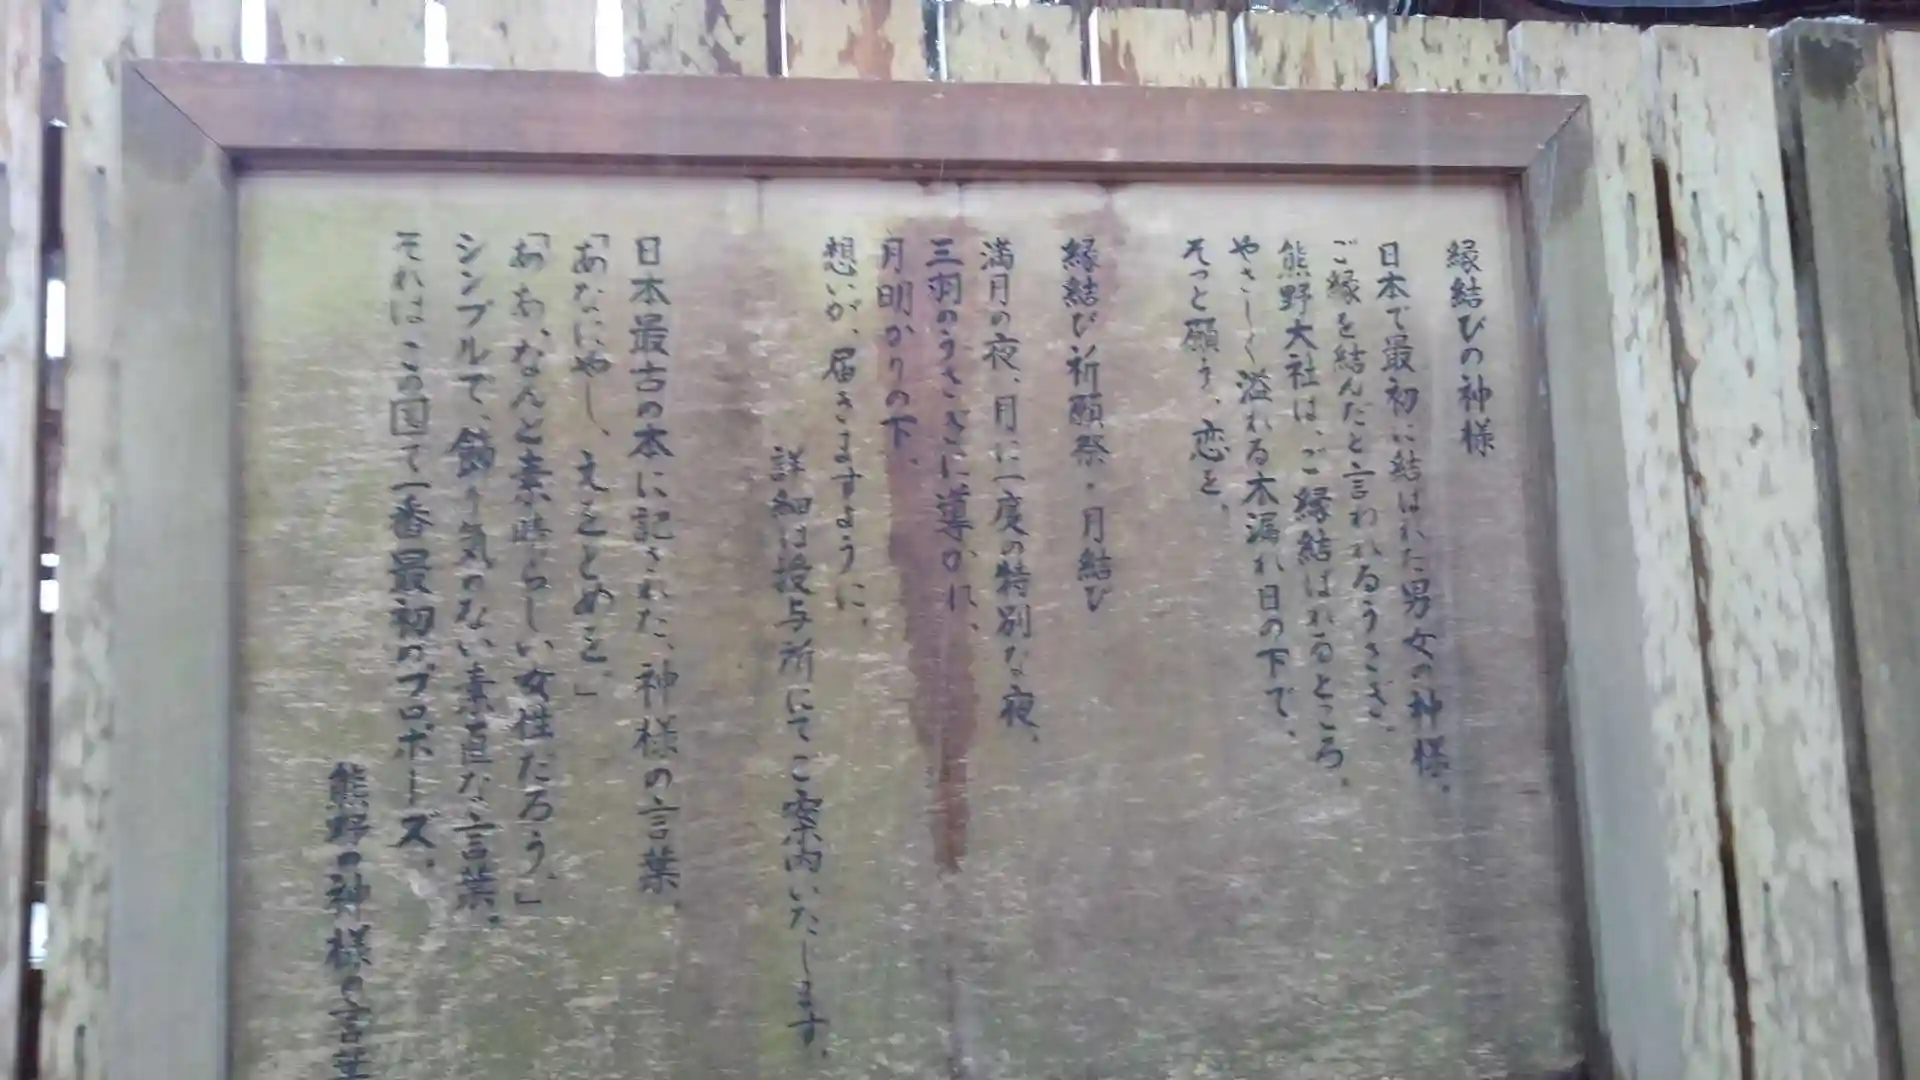 縁結びの神様
日本で最初に結ばれた男女の神様。
ご縁を結んだと言われるうさぎ。
熊野大社は、ご縁結ばれるところ。
やさしく溢れる木漏れ日の下で、
そっと願う、恋を。
縁結び祈願祭・月結び
満月の夜、月に一度の特別な夜。
三羽のうさぎに導かれ、
月明かりの下、
想いが、届きますように。
詳細は授与所にてご案内いたします。
日本最古の本に記された、神様の言葉。
「あなにやし、えをとめを。」
「ああ、なんと素晴らしい女性だろう。」
シンプルで、飾り気のない素直な言葉。
それはこの国で一番最初のプロポーズ。
熊野の神様の言葉